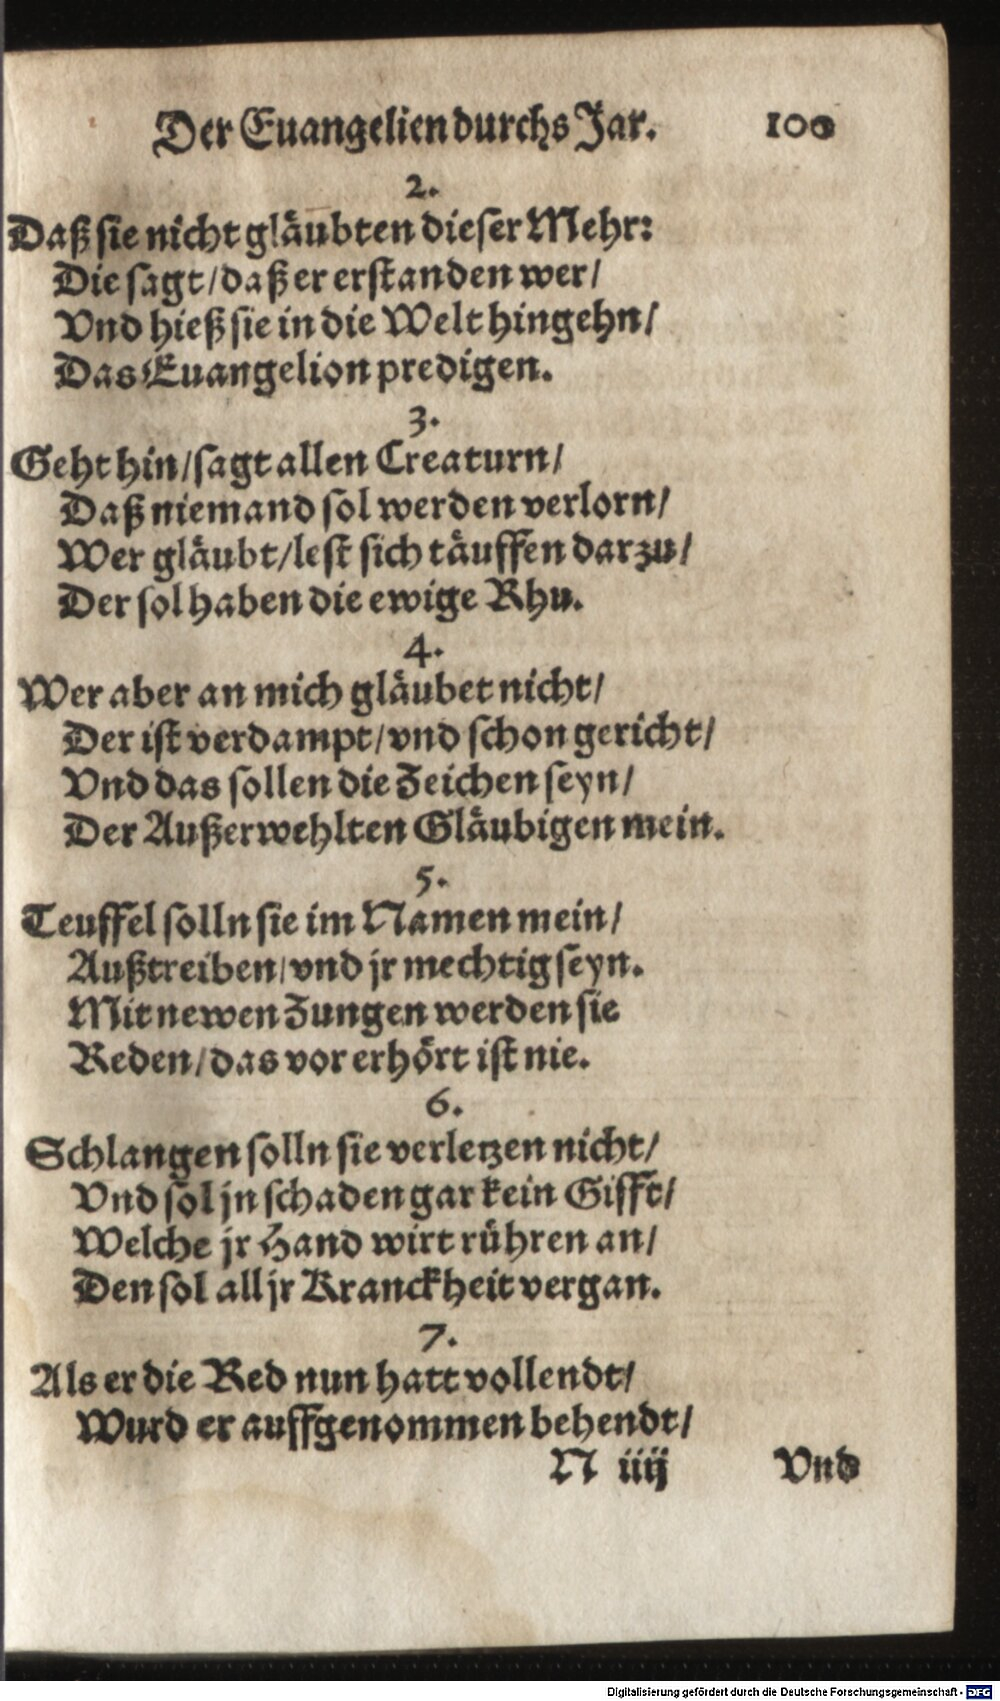 Der Euangelien durchs Jar. 100
2.
Daß sie nicht gläubten dieser Mehr:
Die sagt/ daß er erstanden wer/
Vnd hieß sie in die Welt hingehn/
Das Euangelion predigen.
3.
Geht hin/ sagt allen Creaturn/
Daß niemand sol werden verlorn/
Wer gläubt/ lest sich täuffen darzu/
Der sol haben die ewige Rhu.
4.
Wer aber an mich gläubet nicht/
Der ist verdampt/ vnd schon gericht/
Vnd das sollen die Zeichen seyn/
Der Außerwehlten Gläubigen mein.
5.
Teuffel solln sie im Namen mein/
Außtreiben/ vnd jr mechtig seyn.
Mit newen Zungen werden sie
Reden/ das vor erhört ist nie.
6.
Schlangen solln sie verletzen nicht/
Vnd sol jn schaden gar kein Gifft/
Welche jr Hand wirt rühren an/
Den sol all jr Kranckheit vergan.
7.
Als er die Red nun hatt vollendt/
Wurd er auffgenommen behendt/
N iiij Vnd
Digitalisierung gefördert durch die Deutsche Forschungsgemeinschaft - DFG